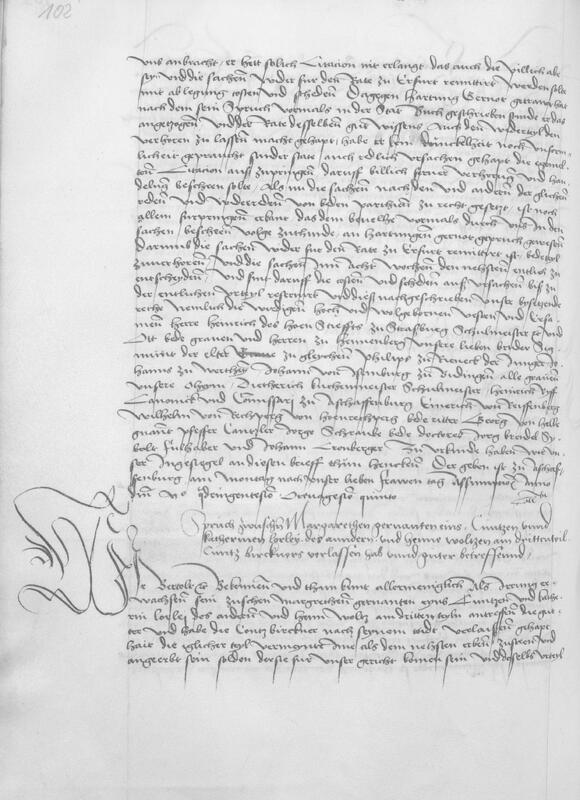 102
uns anbracht er hett solich Citacion nit erlangt das auch die pillich abe
sey und die sachen wider fur den Rate zu Erfurt remittirt werden solt
mit ablegung costen und scheden Dagegen Hartung Gernot
nach dem sein Spruch vormals in der Stat Buch geschrieben
angezogen und der Rate desselben gut wissens
verhoren zu lassen macht gehapt habe er kein dunckelheit noch
licheit gepraucht sunder stat auch redlich ursachen gehapt die
Citacion auß zupringen daruff billich ferner verhorung und han
delung bescheen solte Als nu die sachen nach den und andern der glichen
reden und widerreden von beden partheien zu recht gesetzt ist noch
allem furpringen erkent das dem bevelhe vormals durch uns in den
sachen bescheen volge zuthunde an Hartungen gernot gepruch gewesen
darumb die sachen wider fur den Rate zu Erfurt remittirt ist
zuverhoren und die sachen inn acht wochen den nehsten entlich zu
entscheyden und sint daruff die costen und scheden auß ursachen biß zu
der entlichen urteyl reservirt und diese nachgeschrieben unser bysitzende
rechte nemlich die wirdigen hoch und wolgebornen vesten und Ersa
men Herre Heinrich des hoen Stieffts zu Straßburg Schulmeister und
Ott bede graven und herren zu Hennenberg unsere lieben bruder Sig
mundt der elter zu glychen Philips zu Rieneck der Junger Jo
hanns zu Wertheim Johann von Isenburg zu Budingen alle graven
unsere Oheim Dietherich kuchenmeister Schulmeister Heinrich
Canonick und Comissary zu Aschaffenburg Emerich von Reiffenberg
Wilhelm von Rechperg von hoenrechperg bede ritter Georg von Helle
gnant pfeffer Cantzler Jorge Schrancke bede doctores Jorg brendel
und Johann Cronberger Zu urkunde haben wir un
ser Ingesigel an diesen brieff thun hencken Der geben ist zu Aschaf
fenburg am Montag nach unser lieben frawen tag Assumptionis anno
dm quinto
Spruch zwuschen Margarethen gernanten eins Cuntzen unnd
katherinen lorley des anndern und henne woltzen am dritten teil
Cuntz birckners verlassen hab unnd guter betreffennd
Wir Bertolt Bekennen und thun kunt allermeniglich Als Irrung er
wachsen sein zuschen margrethen gernanten eyns Cuntzen und kathe
rin lorley des andern und henn woltz am dritten teyln antreffen die gut
ter und habe die Contz birckner nach seynem tode verlassen gehapt
hait die iglicher teyl vermeynt ine als dem nehsten erben zusteen und
angeerbt sein solden dorste fur unser gericht komen sein und daselbs urteyl